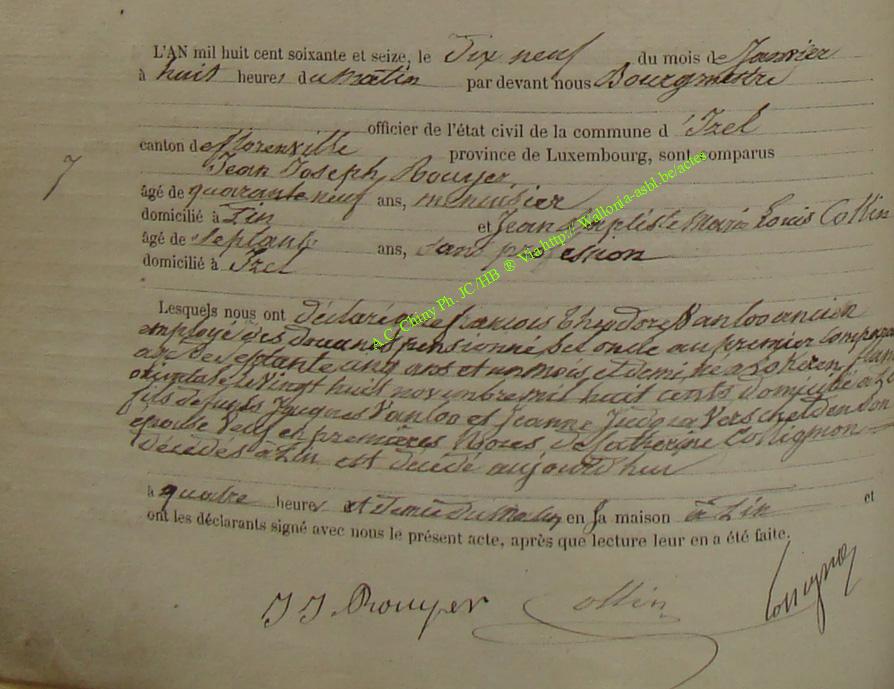 L'AN mil huit cent soixante et seize, le Dix neuf du mois de Janvier
à huit heures du Matin par devant nous Bourgmestre
officier de l'état civil de la commune d'Izel
canton de Florenville province de Luxembourg, sont comparus
7 Jean Joseph Rouyer
âgé de quarante neuf ans, menuisier
domicilié à Pin et Jean Baptiste Marie Louis Collin
âgé de septante ans, sans profession
domicilié à Izel
Lesquels nous ont déclaré que françois Théodore Vanloo ancien
employé des douanes pensionné bel oncle au premier comparant
agé de septante cinq ans et un mois et demi, né a Lokeren
orientale le vingt huit novembre mil huit cents domicilié à
fils de funts Jacques Vanloo et Jeanne Judoca Verschelden
époux veuf en premières Noces de Catherine Collignon
décédés à Pin est décédé aujourd'hui
à quatre heures et demie du Matin en sa maison à Pin et
ont les déclarants signé avec nous le présent acte, après que lecture leur en a été faite.
J J. Rouyer Collin
A.C. Chiny Ph. JC/HB ® Via http://Wallonia-asbl.be/actes